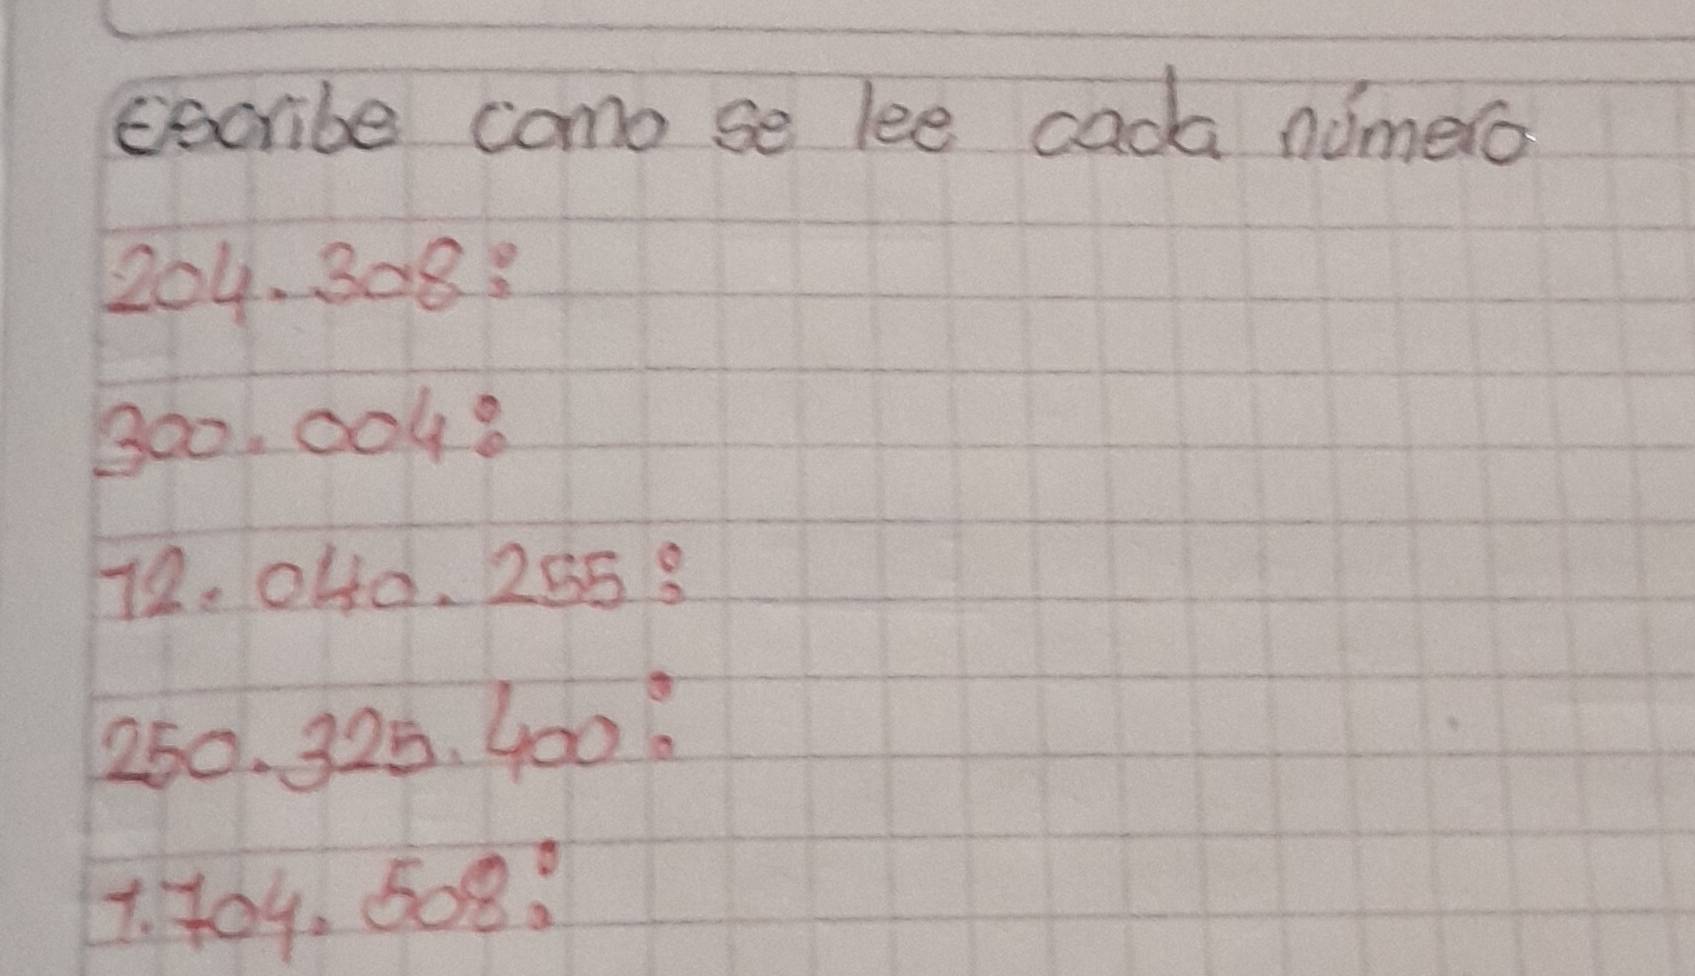 Escribe como se lee cada número
204.308:
300.004:
12.040.255:
250.325.400:
1.704.508: